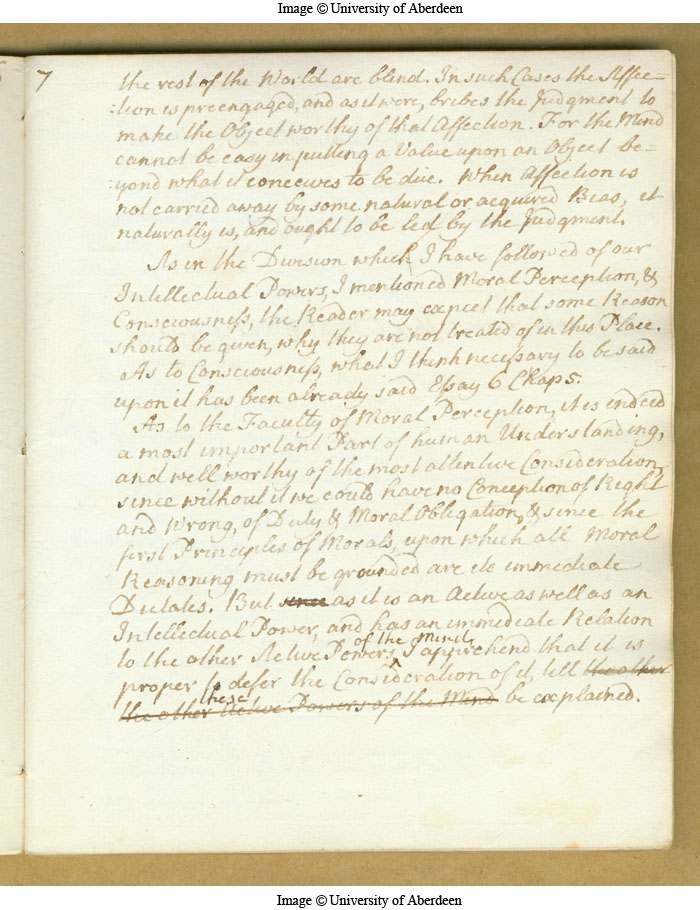 Image © University of Aberdeen
7
the rest of the World are blind. In such Cases the Affec=
:tion is preengaged, and as it were, bribes the Judgment to
make the Object worthy of that Affection. For the Mind
cannot be easy in putting a Value upon an Object be=
:yond what it conceives to be due. When Affection is
not carried away by some natural or acquired Bias, it
naturally is, and ought to be led by the Judgment.
As in the Division which I have followed of our
Intellectual Powers, I mentioned Moral Perception, &
Consciousness, the Reader may expect that some Reason
should be given, why they are not treated of in this Place.
As to Consciousness, what I think necessary to be said
upon it has been already said Essay 6 Chap 5.
As to the Faculty of Moral Perception, it is indeed
a most important Part of human Understanding,
and well worthy of the most attentive Consideration,
since without it we could have no Conception of Right
and Wrong, of Duty & Moral Obligation, & since the
first Principles of Morals, upon which all Moral
Reasoning must be grounded are its immediate
Dictates. But since as it is an Active as well as an
Intellectual Power, and has an immediate Relation
of the Mind,
to the other Active Powers, I apprehend that it is
proper to defer the Consideration of it, till the other
these
the other Active Powers of the Mind be explained.
Image © University of Aberdeen